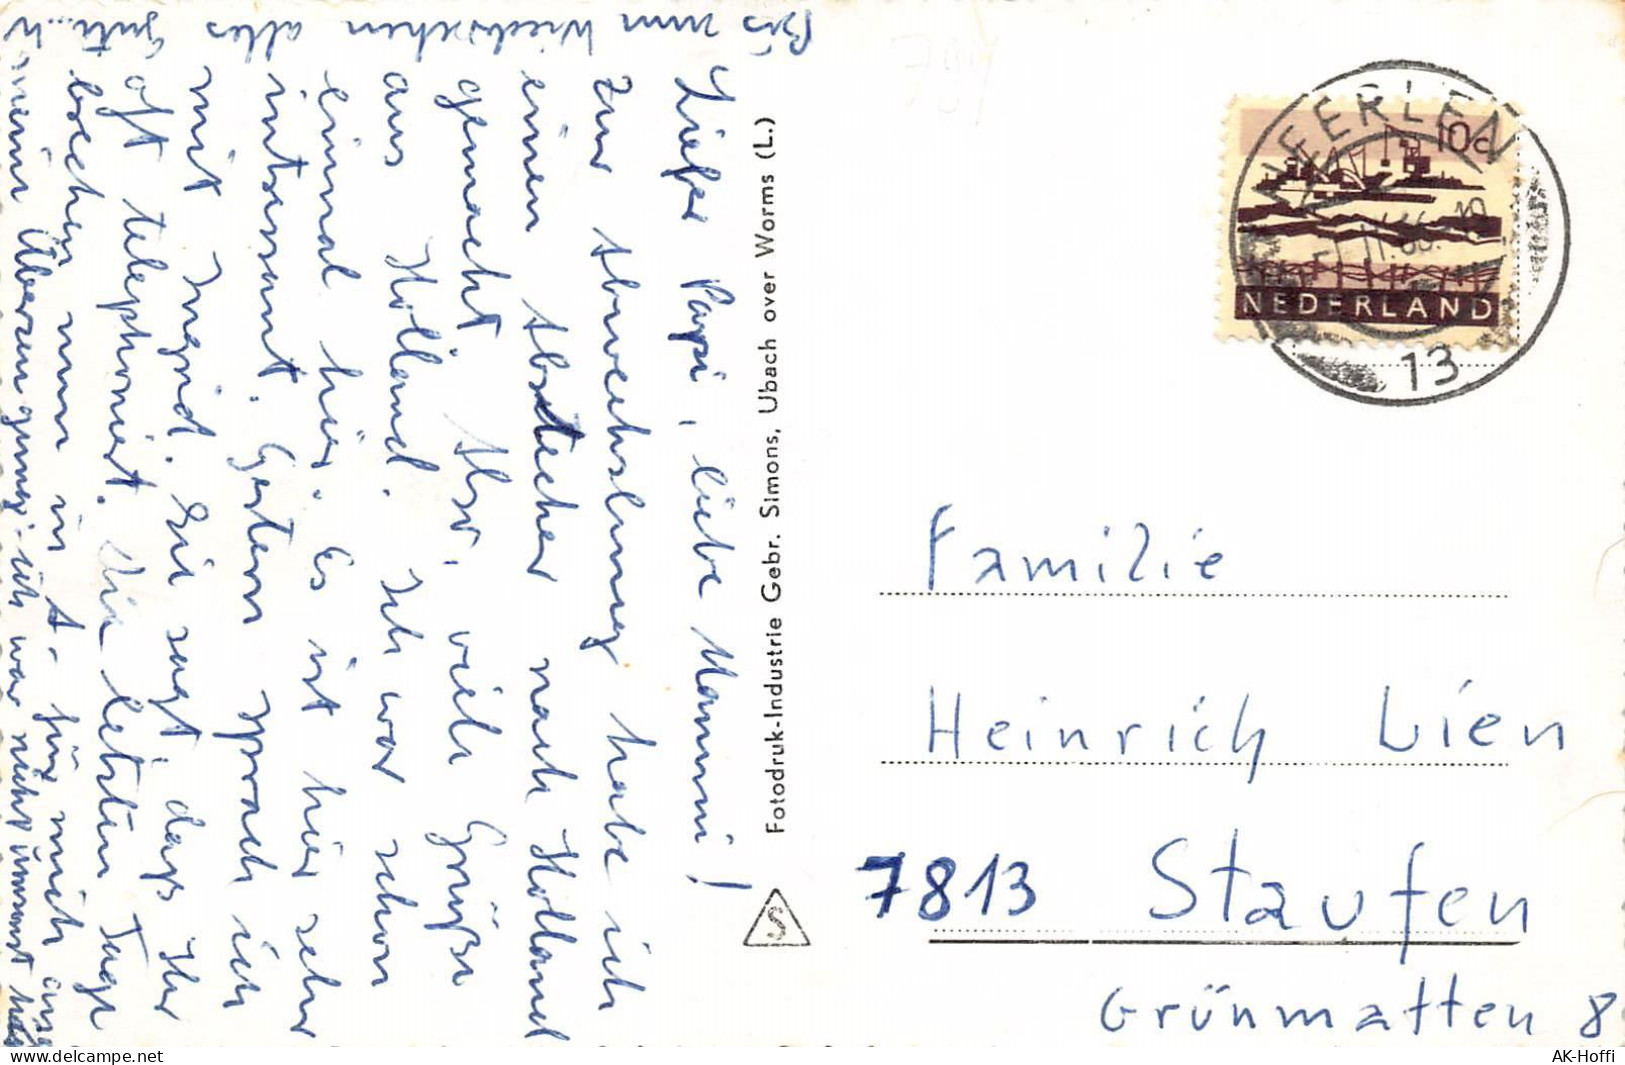 Lieber Papi, liebe Mammi!
Zur Abwechslung habe ich
einen Abstecher nach Holland
gemacht. Also, viele Grüße
aus Holland. Ich war schon
einmal hier. Es ist hier sehr
interessant. Gestern sprach ich
mit Ingrid. Sie sagt, dass Ihr
oft telephoniert. Die letzten Tage
brechen nun in A. für mich an,
meine Überzeugung: ich war nicht umsonst
Bis zum Wiedersehen alles Gute
Fotodruk-Industrie Gebr. Simons, Ubach over Worms (L.)
S
HEERLEN
10c
NEDERLAND
13
Familie
Heinrich Lien
7813 Staufen
Grünmatten 8
AK-Hoffi